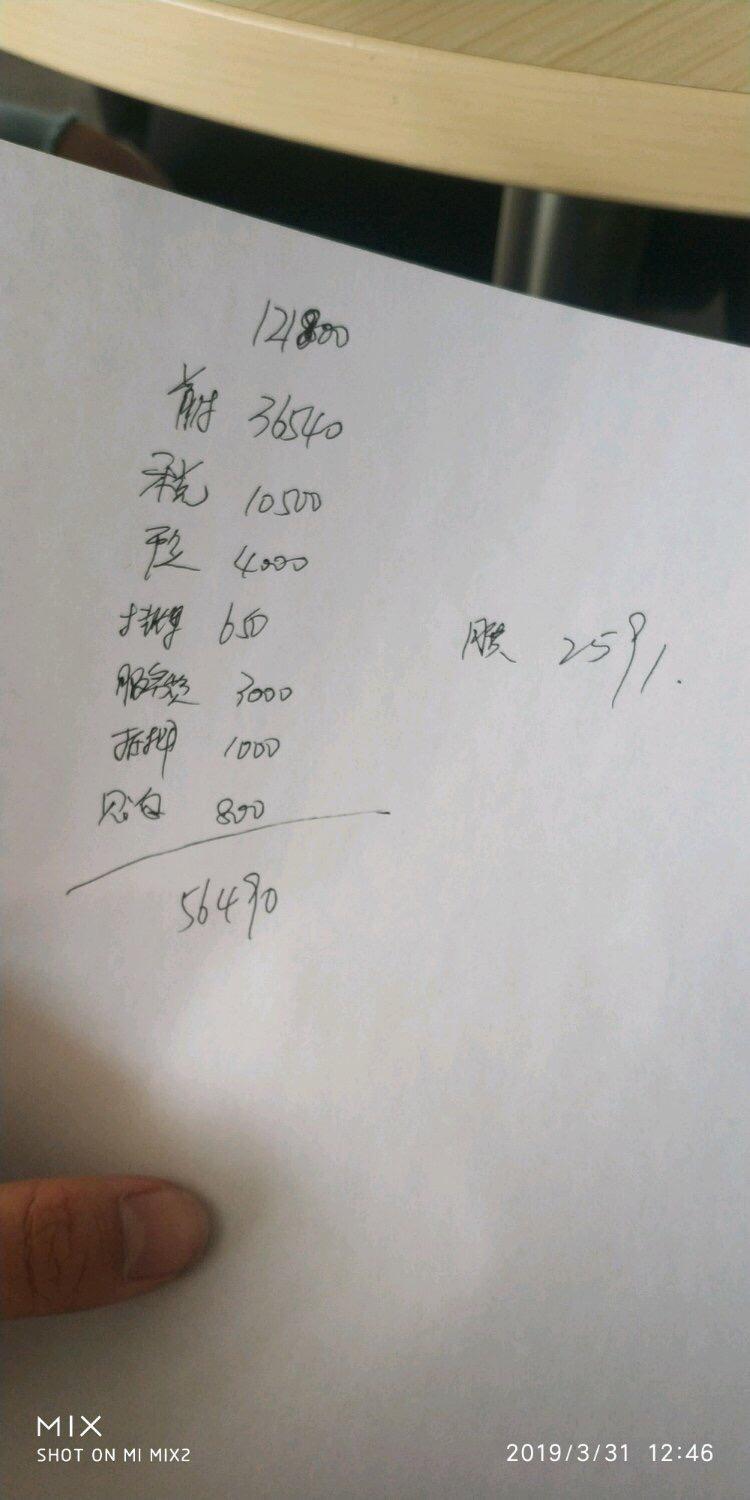 121800
首付 36540
税 10500
保 4000
上牌 650
服务费 3000
抵押 1000
贴息 800
56490
月供 2591.
MIX
SHOT ON MI MIX2
2019/3/31 12:46